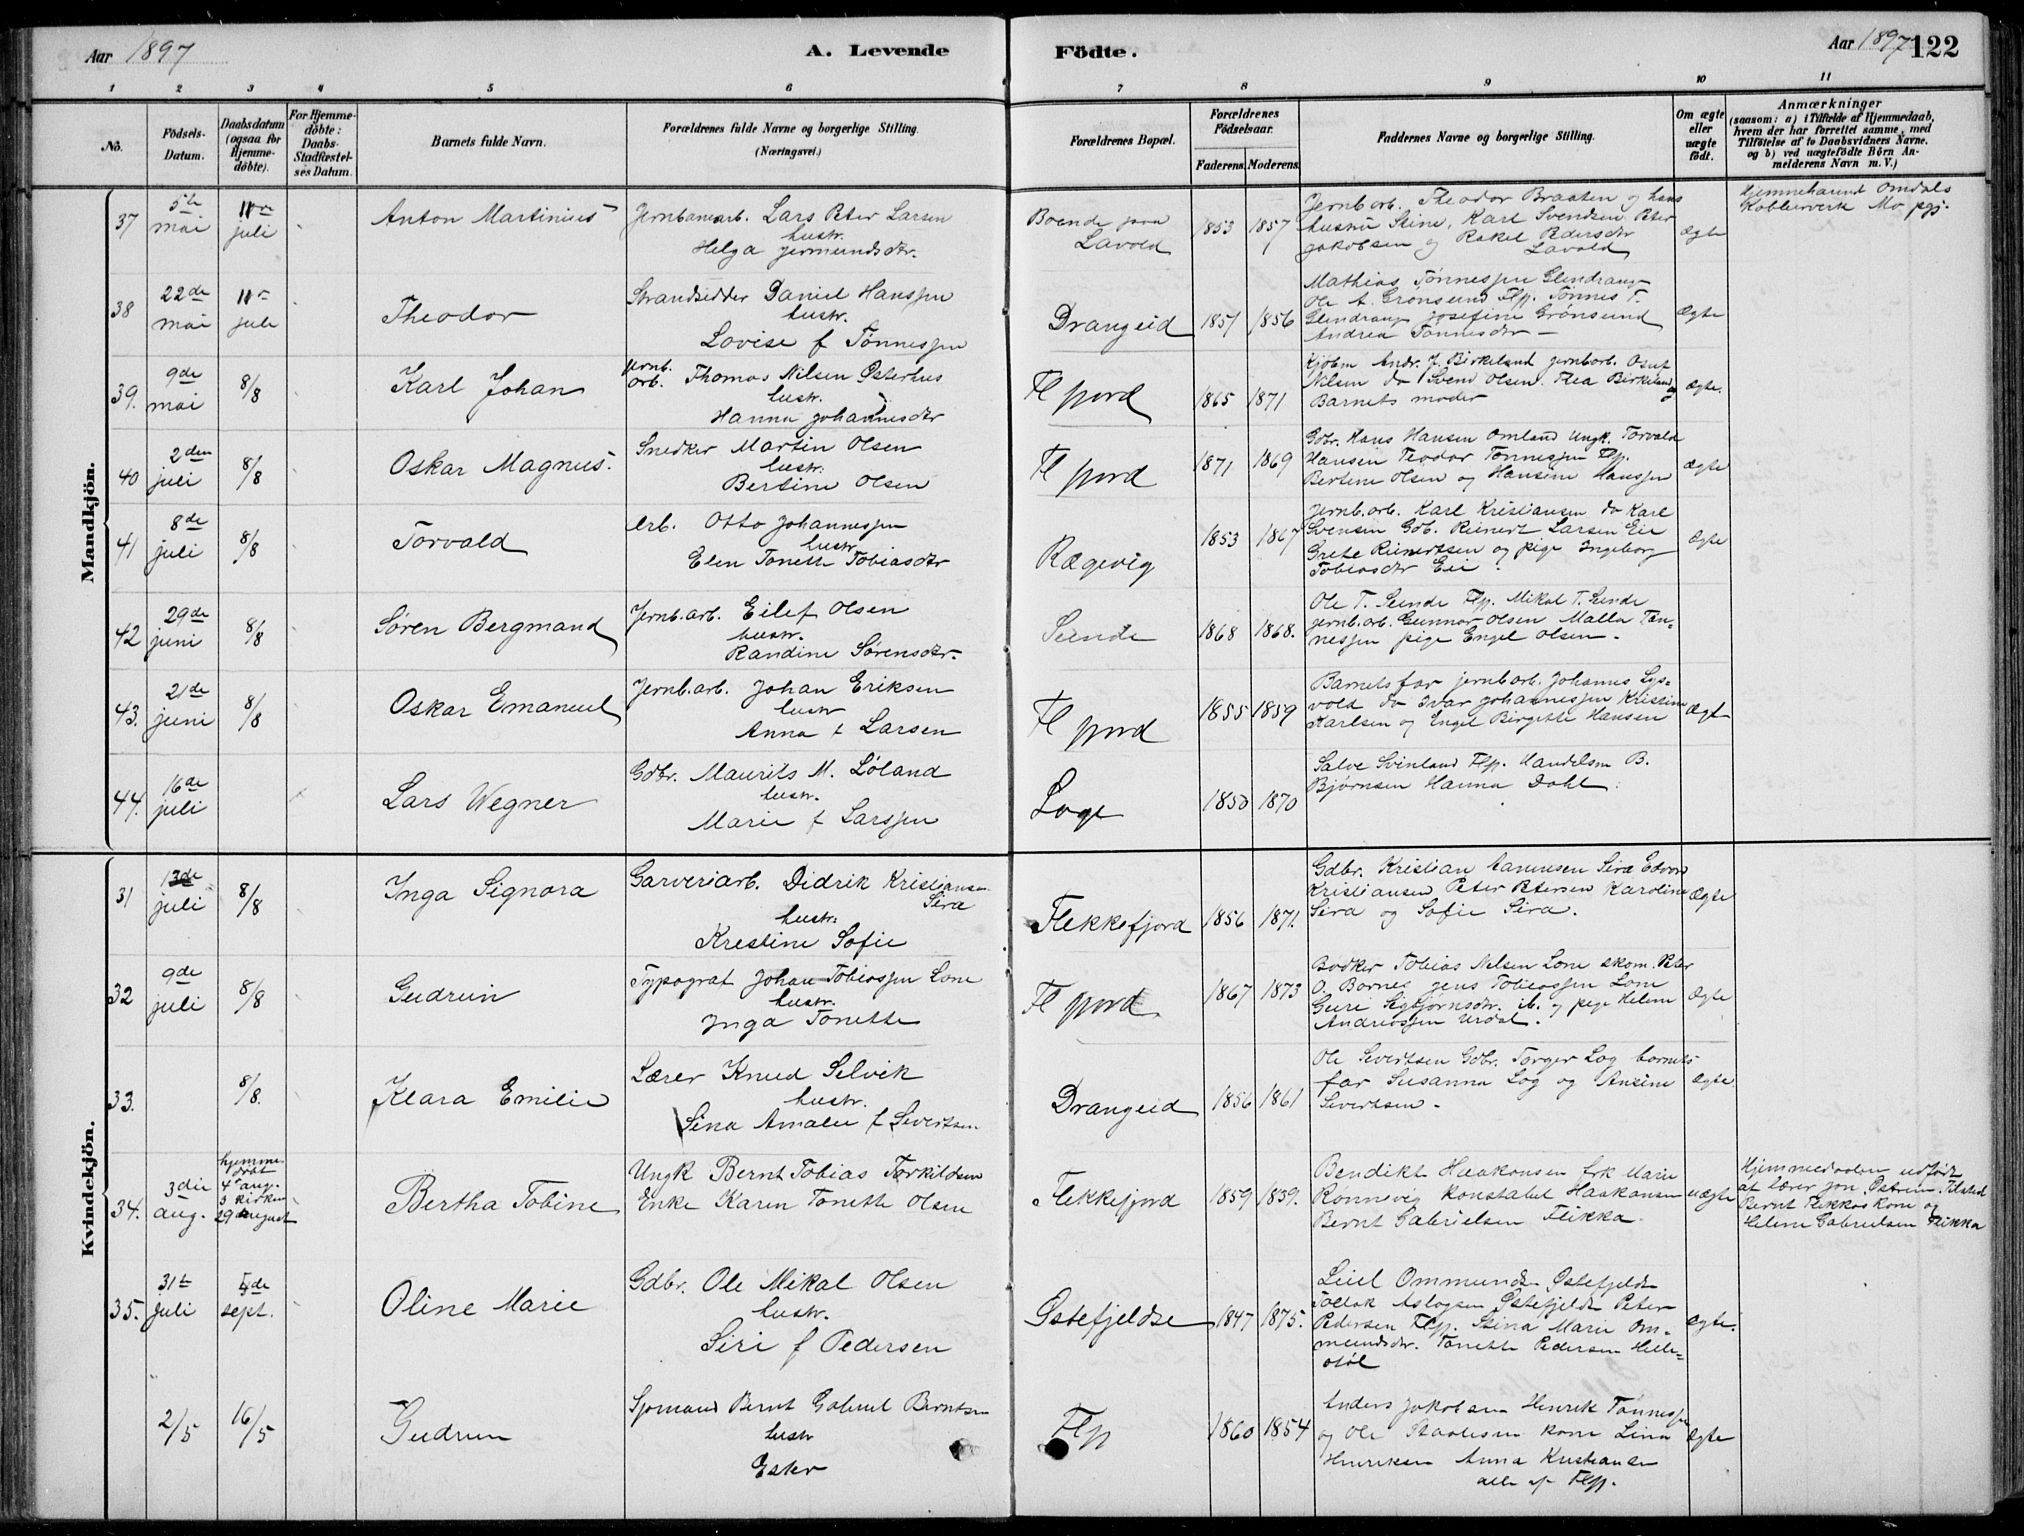 Aar 1897
A. Levende
Födte.
Aar 1897
122
1 2 3 4 5 6 7 8 9 10 11
No.
Födsels-Datum.
Daabsdatum (ogsaa for Hjemmedöbte).
For Hjemmedöbte: Daabs-Stadfæstelses Datum.
Barnets fulde Navn.
Forældrenes fulde Navne og borgerlige Stilling. (Næringsvei.)
Forældrenes Bopæl.
Forældrenes Födselsaar.
Faderens. Moderens.
Faddernes Navne og borgerlige Stilling.
Om ægte eller uægte født.
Anmærkninger
(saasom: a) i Tilfælde af Hjemmedaab, hvem der har forrettet samme, med Tilföielse af to Daabsvidners Navne, og b) ved uægtefödte Börn Anmelderens Navn m. V.)
Mandkjön.
37 5te mai 11te juli Anton Martinius
Jernbanearb. Lars Peter Larsen
hustr.
Helga Jermundsdtr.
Boende paa Lavold 1853 1857
Jernb.arb. Theodor Braaten og hans
hustru Stine, Karl Svendsen Peter
Jakobsen og Rakel Pedersdtr
Lavold
Ægte
Omdals
Mo pgj.
38 22de mai 11te juli Theodor
Strandsidder Daniel Hanssen
hustr.
Lovise f Tønnessen
Drangeid 1851 1856
Mathias Tønnessen Glendrange
Ole A. Grønsund Flfj. Tønnes T.
Glendrange Josefine Grønsund
Andrea Tønnesdtr
Ægte
39. 9de mai 8/8 Karl Johan
Jernb. arb. Thomas Nilsen Østerhus
hustr.
Hanna Johannesdtr
Flfjord 1865 1871
Kjøbm Andr. J. Birkeland jernb.arb. Osuf
Nilsen do Svend Olsen. Thea Birkeland og
Barnets moder
Ægte.
40 2den juli 8/8 Oskar Magnus.
Snedker Martin Olsen
hustr.
Bertine Olsen
Flfjord 1871 1869
Gdbr. Hans Hansen Omland Ungk. Torvald
Hansen Teodor Tønnessen Flfj.
Bertine Olsen og Hansine Hanssen
Ægte
41 8de juli 8/8 Torvald
Arb. Otto Johannessen
hustr
Elen Tonette Tobiasdtr
Rægevig 1853 1867
Jernb.arb. Karl Kristiansen do Karl
Svensen Gdb. Reinert Larsen Eie
Grete Reinertsen og pige Ingeborg
Tobiasdtr Eie.
Ægte
42 29de juni 8/8 Søren Bergmand
Jernb.arb. Eilef Olsen
hustr.
Randine Sørensdtr.
Sunde 1868 1868.
Ole T. Sunde Flfj. Mikal T. Sunde
jernb.arb. Gunnar Olsen Malla Tønnessen
pige Engel Olsen.
43. 21de juni 8/8 Oskar Emanuel
Jernb.arb. Johan Eriksen
hustr
Anna f Larsen
Flfjord 1855 1859
Barnets far jernb.arb. Johannes Lysvold
do Ivar Johannessen Kristine
Karlsen og Engel Birgitte Hansen
Ægte
44. 16de juli Lars Wegner
Gdbr. Maurits M. Løland
hustr.
Marie f Larssen
Loge 1850 1870
Salve Svinland Flfj. Handelsm B.
Bjørnsen Hanna Dahl.
Kvindekjön.
31 13de juli 8/8 Inga Signora
Garveriarb. Didrik Kristiansen Sira
hustr.
Kristine Sofie
Flekkefjord 1856 1871.
Gdbr. Kristian Sira Edvard
Kristiansen Peter Petersen Karoline
Sira og Sofie Sira.
Ægte
32 9de juli 8/8 Gudrun
Typograf Johan Tobiassen Lone
hustr.
Inga Tonette
Flfjord. 1867 1873
Bødker Tobias Nelsen Lone skom. Peter
O. Bornes Jens Tobiassen Lone
Guri Sigbjørnsdtr. ib. og pige Helene
Andreassen Urdal.
Ægte
33. 8/8. Klara Emilie
Lærer Knud Selvik
hustr.
Sina Amalie f Severtsen
Drangeid 1856 1861
Ole Severtsen Gdbr. Torger Log barnets
far Susanna Log og Ansine
Severtsen.
Ægte.
34. 3die aug. hjemmedøbt 4 aug. i kirken 29 august Bertha Tobine
Ungk Bernt Tobias Torkildsen
Enke Karen Tonette Olsen
Flekkefjord 1859 1839.
Bendikt Haakonsen frk Marie
Rønnevig konstabel Haakonsen
Bernt Gabrielsen Flikka.
uægte
Hjemmedaaben udført
af lærer Jon Østrem. Tilsted
Bernt Flikkas kone og
Helene Gabrielsen Flikka
35. 31te juli 5de sept. Oline Marie
Gdbr. Ole Mikal Olsen
hustr.
Siri f Pedersen
Østefjeldse 1847 1875.
Ommunds. Østefjelds
Tollak Aslagsen Østefjelds Peter
Pedersen Flfj. Stina Marie Ommundsdtr.
Tonette Pedersen
Ægte.
2/5 16/5 Gudrun
Sjømand Bernt Gabriel Berntsen
hustr
Ester
Flfj 1860 1854
Anders Jakobsen Henrik Tønnessen
og Ole kone Lina
Henriksen Anna Kristiansen
alle af Flfj.
Ægte